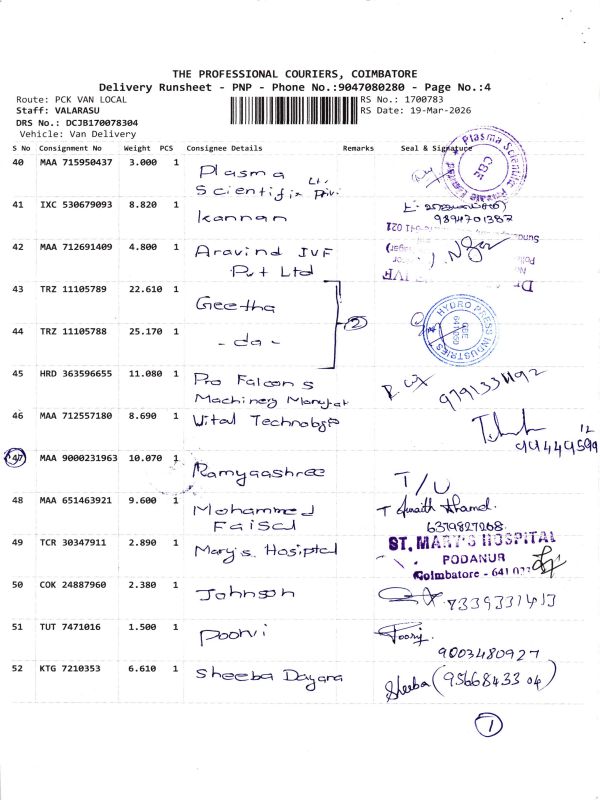 THE PROFESSIONAL COURIERS, COIMBATORE
Delivery Runsheet - PNP - Phone No.:9047080280 - Page No.:4
Route: PCK VAN LOCAL RS No.: 1700783
Staff: VALARASU RS Date: 19-Mar-2026
DRS No.: DCJB170078304
Vehicle: Van Delivery
S No Consignment No Weight PCS Consignee Details Remarks Seal & Signature
40 MAA 715950437 3.000 1 Plasma
Scientifix Pvt. Lt.
Plasma Scientific Private
CBE
41 IXC 530679093 8.820 1 Kannan
9894701387
641 021
42 MAA 712691409 4.800 1 Aravind IVF
Pvt Ltd
43 TRZ 11105789 22.610 1 Geetha
2
44 TRZ 11105788 25.170 1 - do -
HYDRO PRESS INDUSTRIES
CBE
45 HRD 363596655 11.080 1 Pro Falcons
Machinery
9791331192
46 MAA 712557180 8.690 1 Vital
47 MAA 9000231963 10.070 1 Ramyaashree
T/U
48 MAA 651463921 9.600 1 Mohammed
Faisal
6379827268.
49 TCR 30347911 2.890 1 Mary's Hosiptal
ST. MARY'S HOSPITAL
PODANUR
Coimbatore - 641 023
50 COK 24887960 2.380 1 Johnson
7339331413
51 TUT 7471016 1.500 1 Poorvi
9003480927
52 KTG 7210353 6.610 1 Sheeba Dayana
Sheeba (9566843304)
1